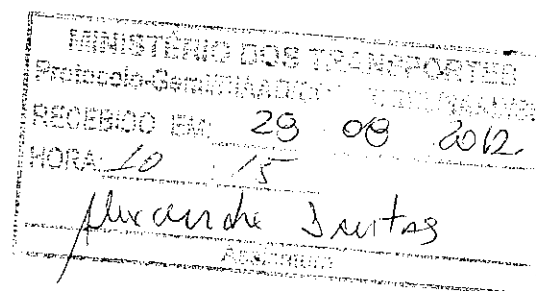 MINISTÉRIO DOS TRANSPORTES
Protocolo-Geral
RECEBIDO EM: 29 08 2012
HORA: 10 15
Alexandre
Assinatura